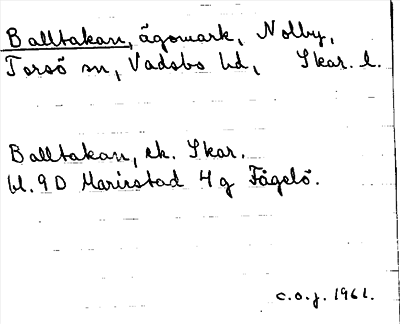 Balltakan, ägomark, Nolby,
Torsö sn, Vadsbo hd, Skar. l.
Balltakan, ek. Skar.
bl. 9D Mariestad 4g Fågelö.
c.o.j. 1961.